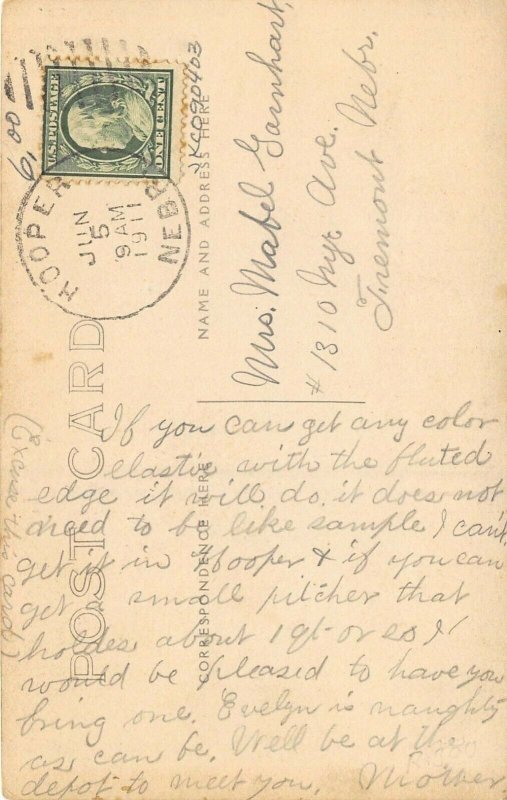 U.S. POSTAGE
ONE CENT
HOOPER
NEBR
JUN
5
9 AM
1911
6 00
POST CARD
NAME AND ADDRESS HERE
CORRESPONDENCE HERE
Mrs. Mabel Garnhart,
# 1310 Nye Ave.
Fremont Nebr.
If you can get any color
elastic with the fluted
edge it will do, it does not
need to be like sample I can't
get it in Hooper & if you can
get a small pitcher that
holdes about 1 qt or so I
would be pleased to have you
bring one. Evelyn is naughty
as can be. Well be at the
depot to meet you. Mother
(Excuse this card)